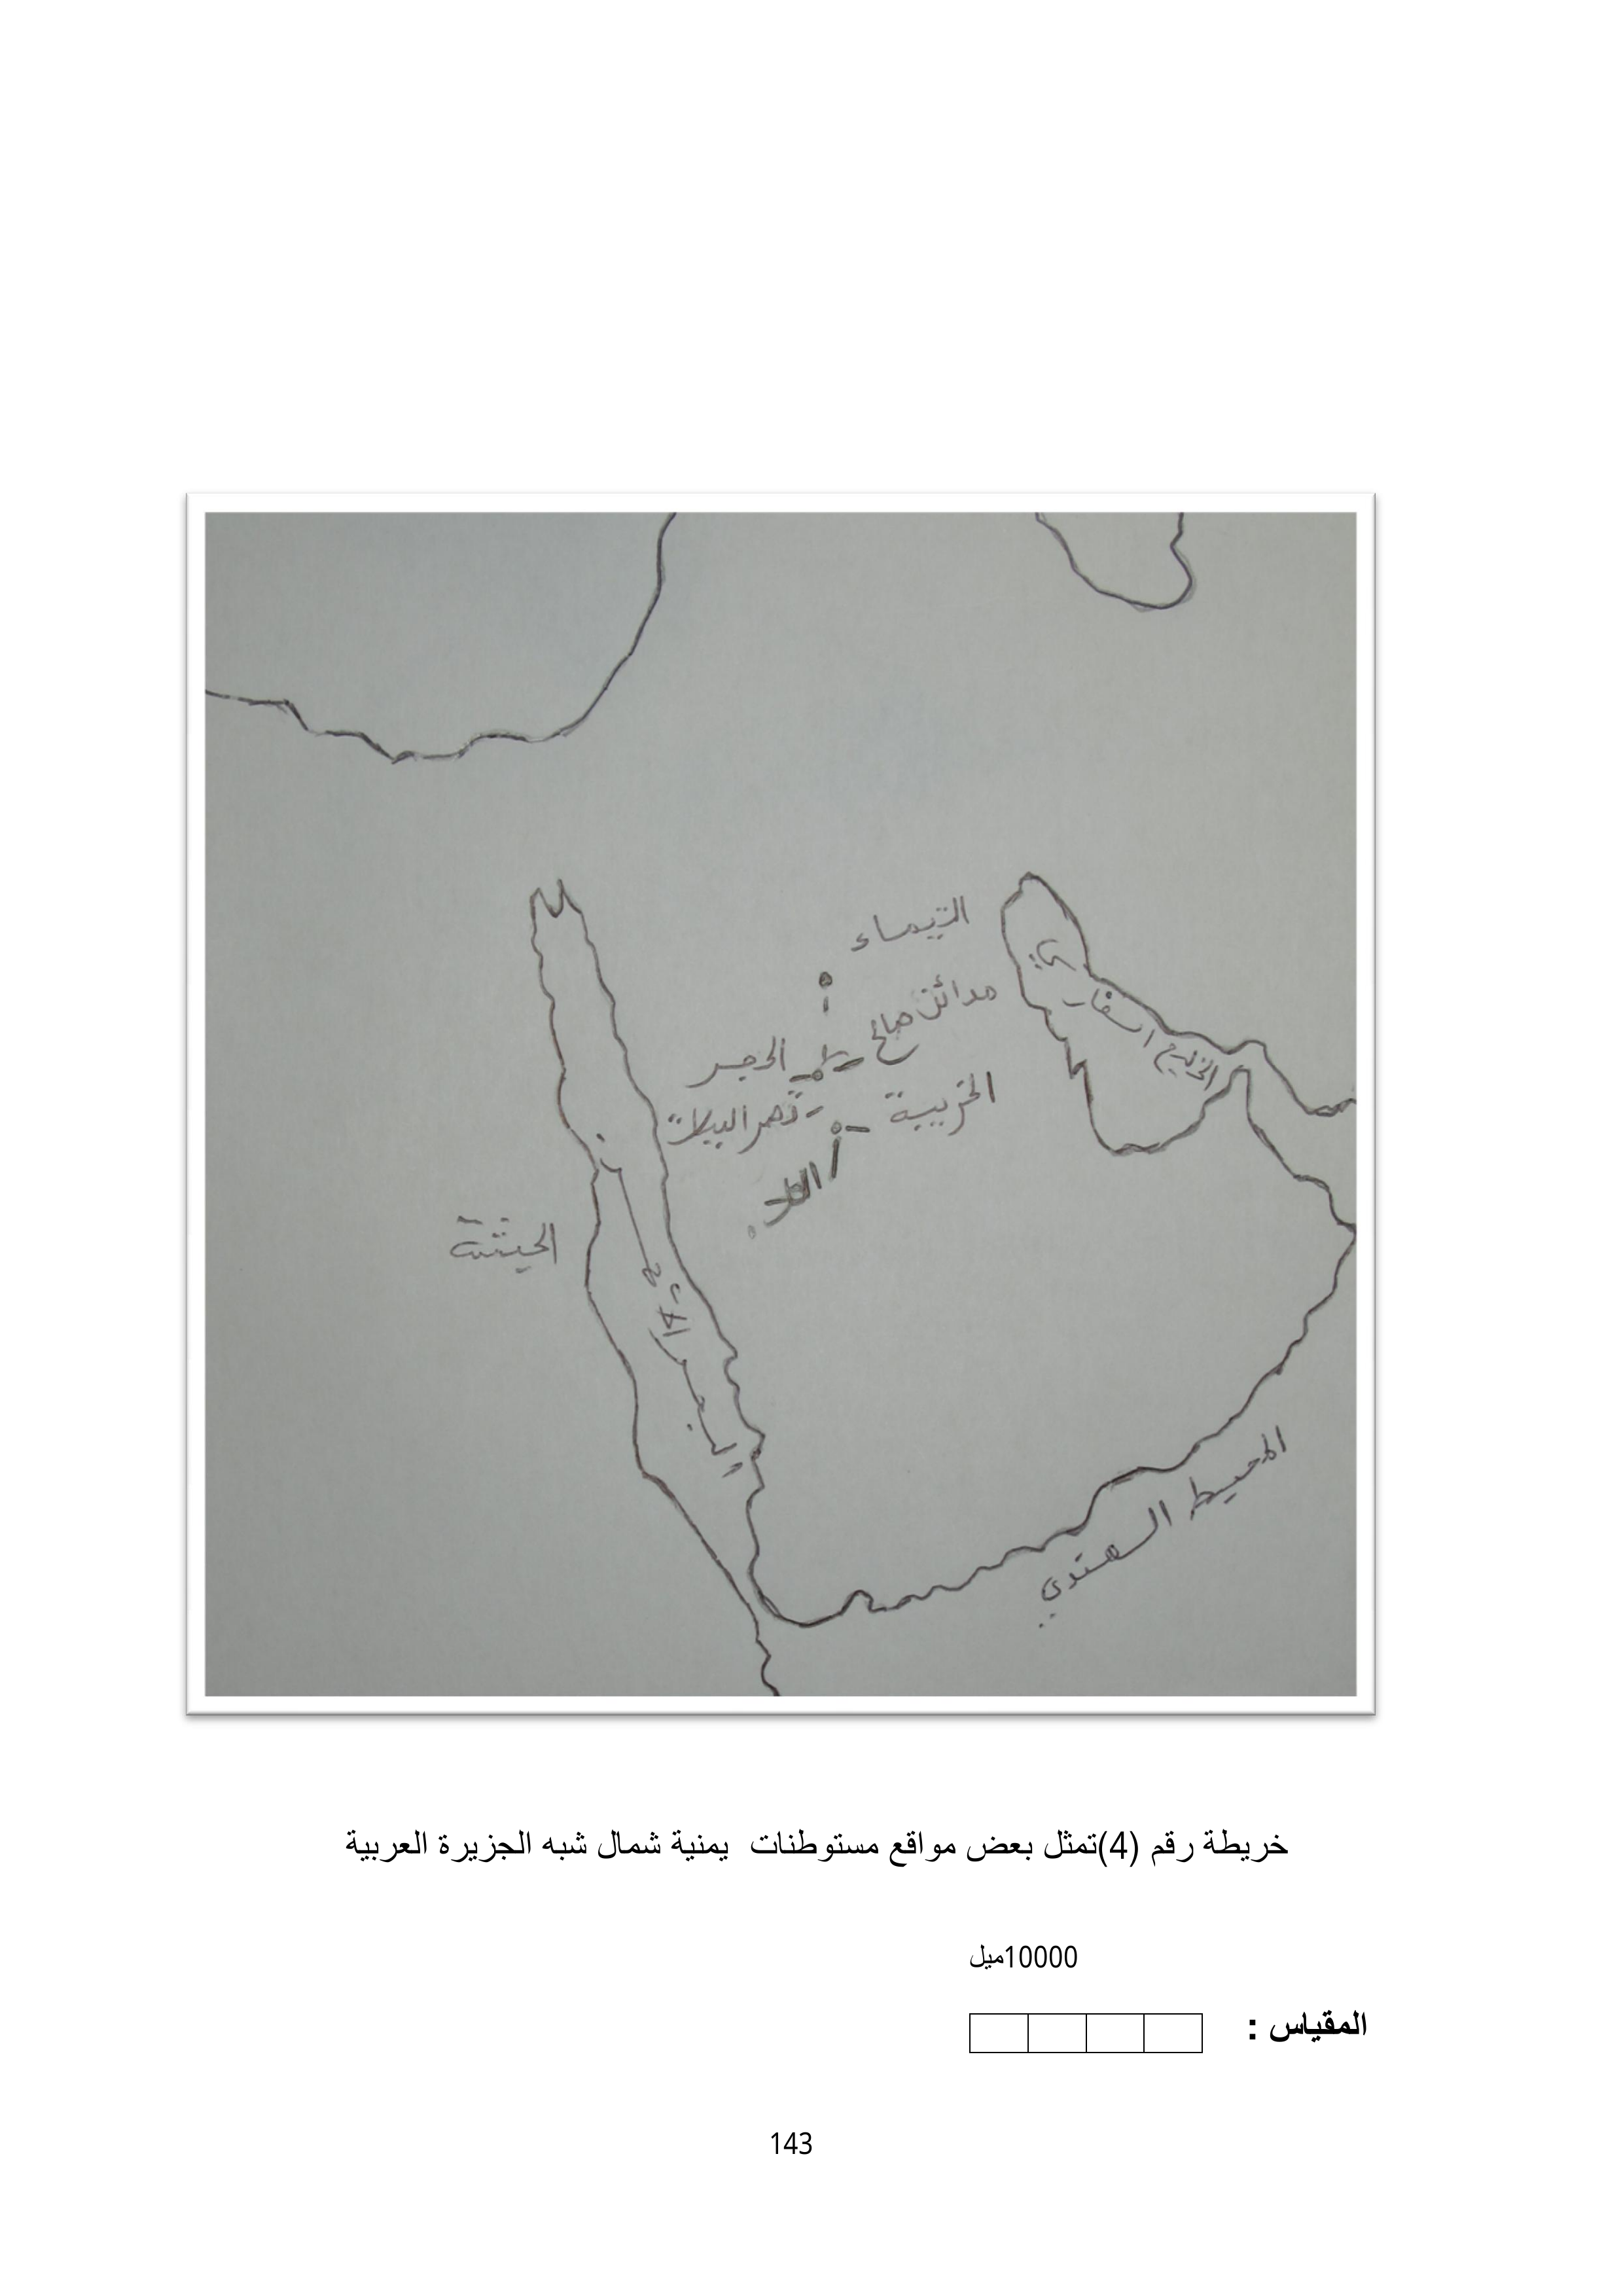 التيماء
مدائن صالح
الحجر
الخريبة
العلا
الحبشة
البحر الأحمر
المحيط الهندي
خريطة رقم (4)تمثل بعض مواقع مستوطنات يمنية شمال شبه الجزيرة العربية
10000ميل
المقياس :
143